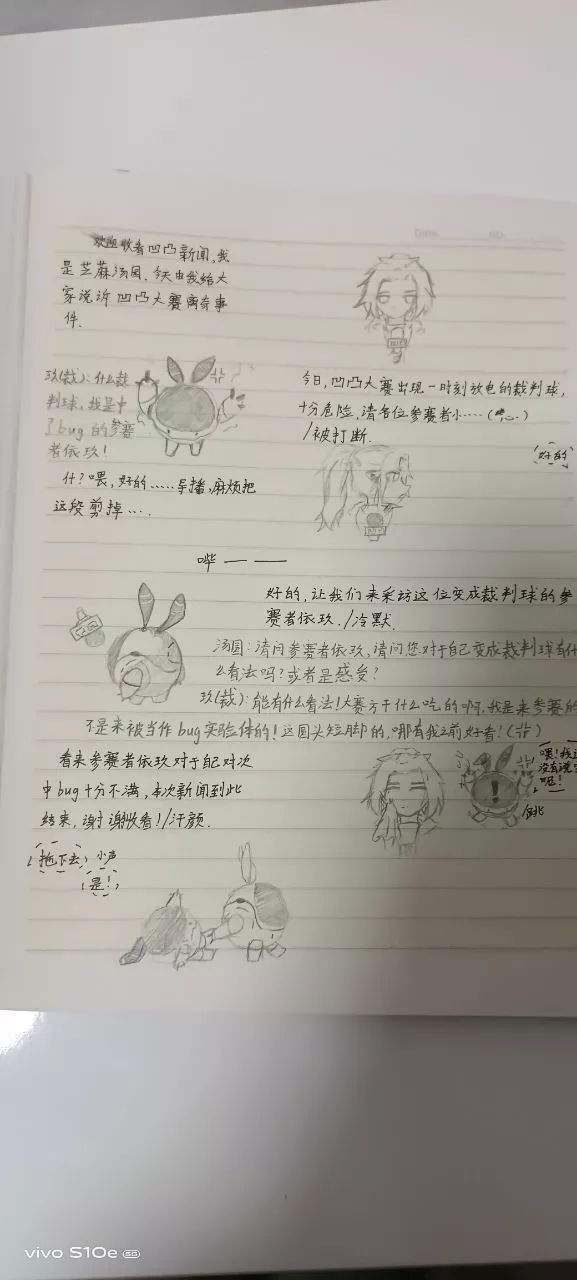 欢迎收看凹凸新闻,我
是芝麻汤圆,今天由我给大
家说诉凹凸大赛离奇事
件.
今日,凹凸大赛出现一时刻放电的裁判球,
十分危险,请各位参赛者小……(心)
/被打断.
玖(裁):什么裁
判球,我是中
了bug的参赛
者依玖!
好的
什?喂,好的……导播,麻烦把
这段剪掉….
哔———
好的,让我们来采访这位变成裁判球的参
赛者依玖./冷默.
汤圆:请问参赛者依玖,请问您对于自己变成裁判球有什
么看法吗?或者是感受?
玖(裁):能有什么看法!大赛方干什么吃的啊,我是来参赛的
不是来被当作bug实验体的!这圆头短脚的,哪有我之前好看!(卝)
看来参赛者依玖对于自己对次
中bug十分不满,本次新闻到此
结束,谢谢收看!/汗颜.
喂!我还
没有说完
呢!
/跳
拖下去 小声
是!
vivo S10e 5G